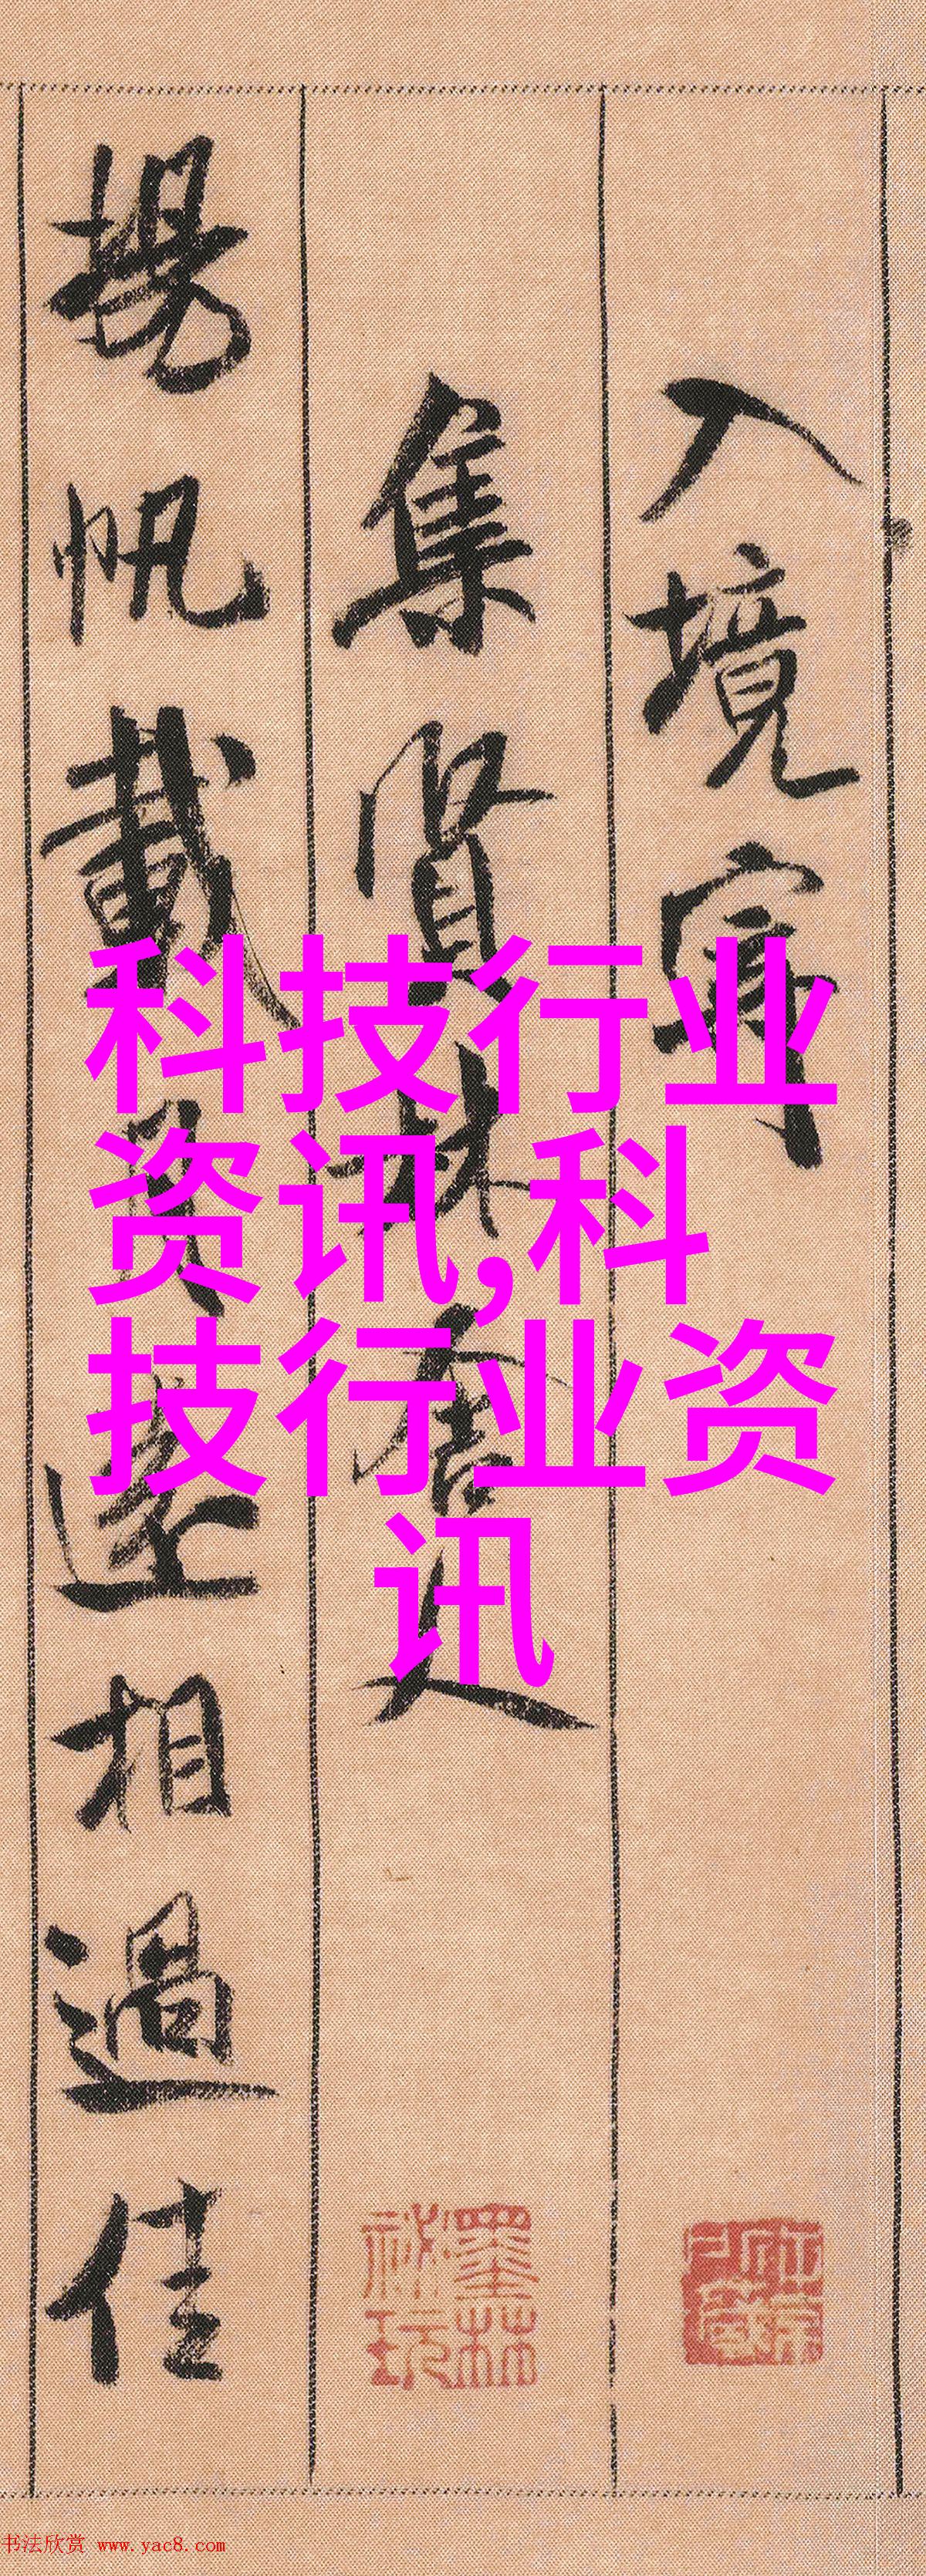 入境寄
集賢林舍人
揚帆載月遠相過佳
科技行业
资讯,科
技行业资
讯
墨林
秘玩
书法欣赏 www.yac8.com